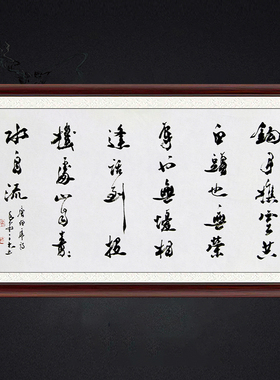 釣月樵雲共
白頭也無榮
辱也無憂相
逢話到投
機處山自青々
水自流
唐伯虎詩